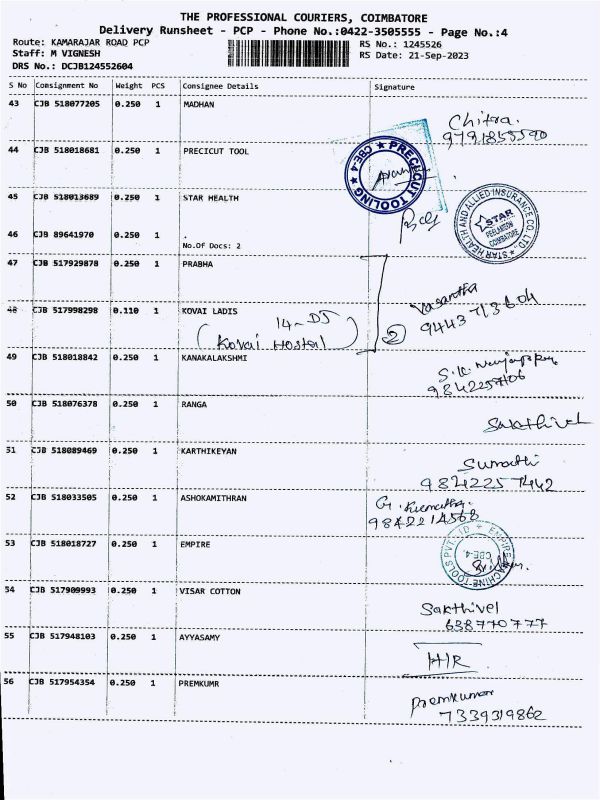 THE PROFESSIONAL COURIERS, COIMBATORE
Delivery Runsheet - PCP - Phone No.:0422-3505555 - Page No.:4
Route: KAMARAJAR ROAD PCP
RS No.: 1245526
Staff: M VIGNESH
RS Date: 21-Sep-2023
DRS No.: DCJB124552604
S No Consignment No Weight PCS Consignee Details Signature
43 CJB 518077205 0.250 1 MADHAN
Chitra
44 CJB 518018681 0.250 1 PRECICUT TOOL
★ PRECICUT TOOLING ★ CBE-4
45 CJB 518013689 0.250 1 STAR HEALTH
STAR HEALTH AND ALLIED INSURANCE CO. LTD.
STAR
PEELAMEDU
COIMBATORE
46 CJB 89641970 0.250 1 .
No.Of Docs: 2
47 CJB 517929878 0.250 1 PRABHA
Vasantha
48 CJB 517998298 0.110 1 KOVAI LADIS
14-DJ
(Kovai Hostal)
2
49 CJB 518018842 0.250 1 KANAKALAKSHMI
9842257106
50 CJB 518076378 0.250 1 RANGA
Sakthivel
51 CJB 518089469 0.250 1 KARTHIKEYAN
Sumathi
9842257442
52 CJB 518033505 0.250 1 ASHOKAMITHRAN
9842214568
53 CJB 518018727 0.250 1 EMPIRE
★ EMPIRE MACHINE TOOLS PVT. LTD
CBE-4.
54 CJB 517909993 0.250 1 VISAR COTTON
Sakthivel
638770777
55 CJB 517948103 0.250 1 AYYASAMY
HIR
56 CJB 517954354 0.250 1 PREMKUMR
Premkumar
7339319862